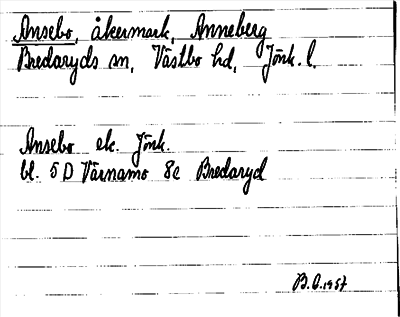 Ansebo, åkermark, Anneberg
Bredaryds sn, Västbo hd, Jönk. l.
Ansebo ek. Jönk.
bl. 5D Värnamo 8c Bredaryd
B.O. 1957